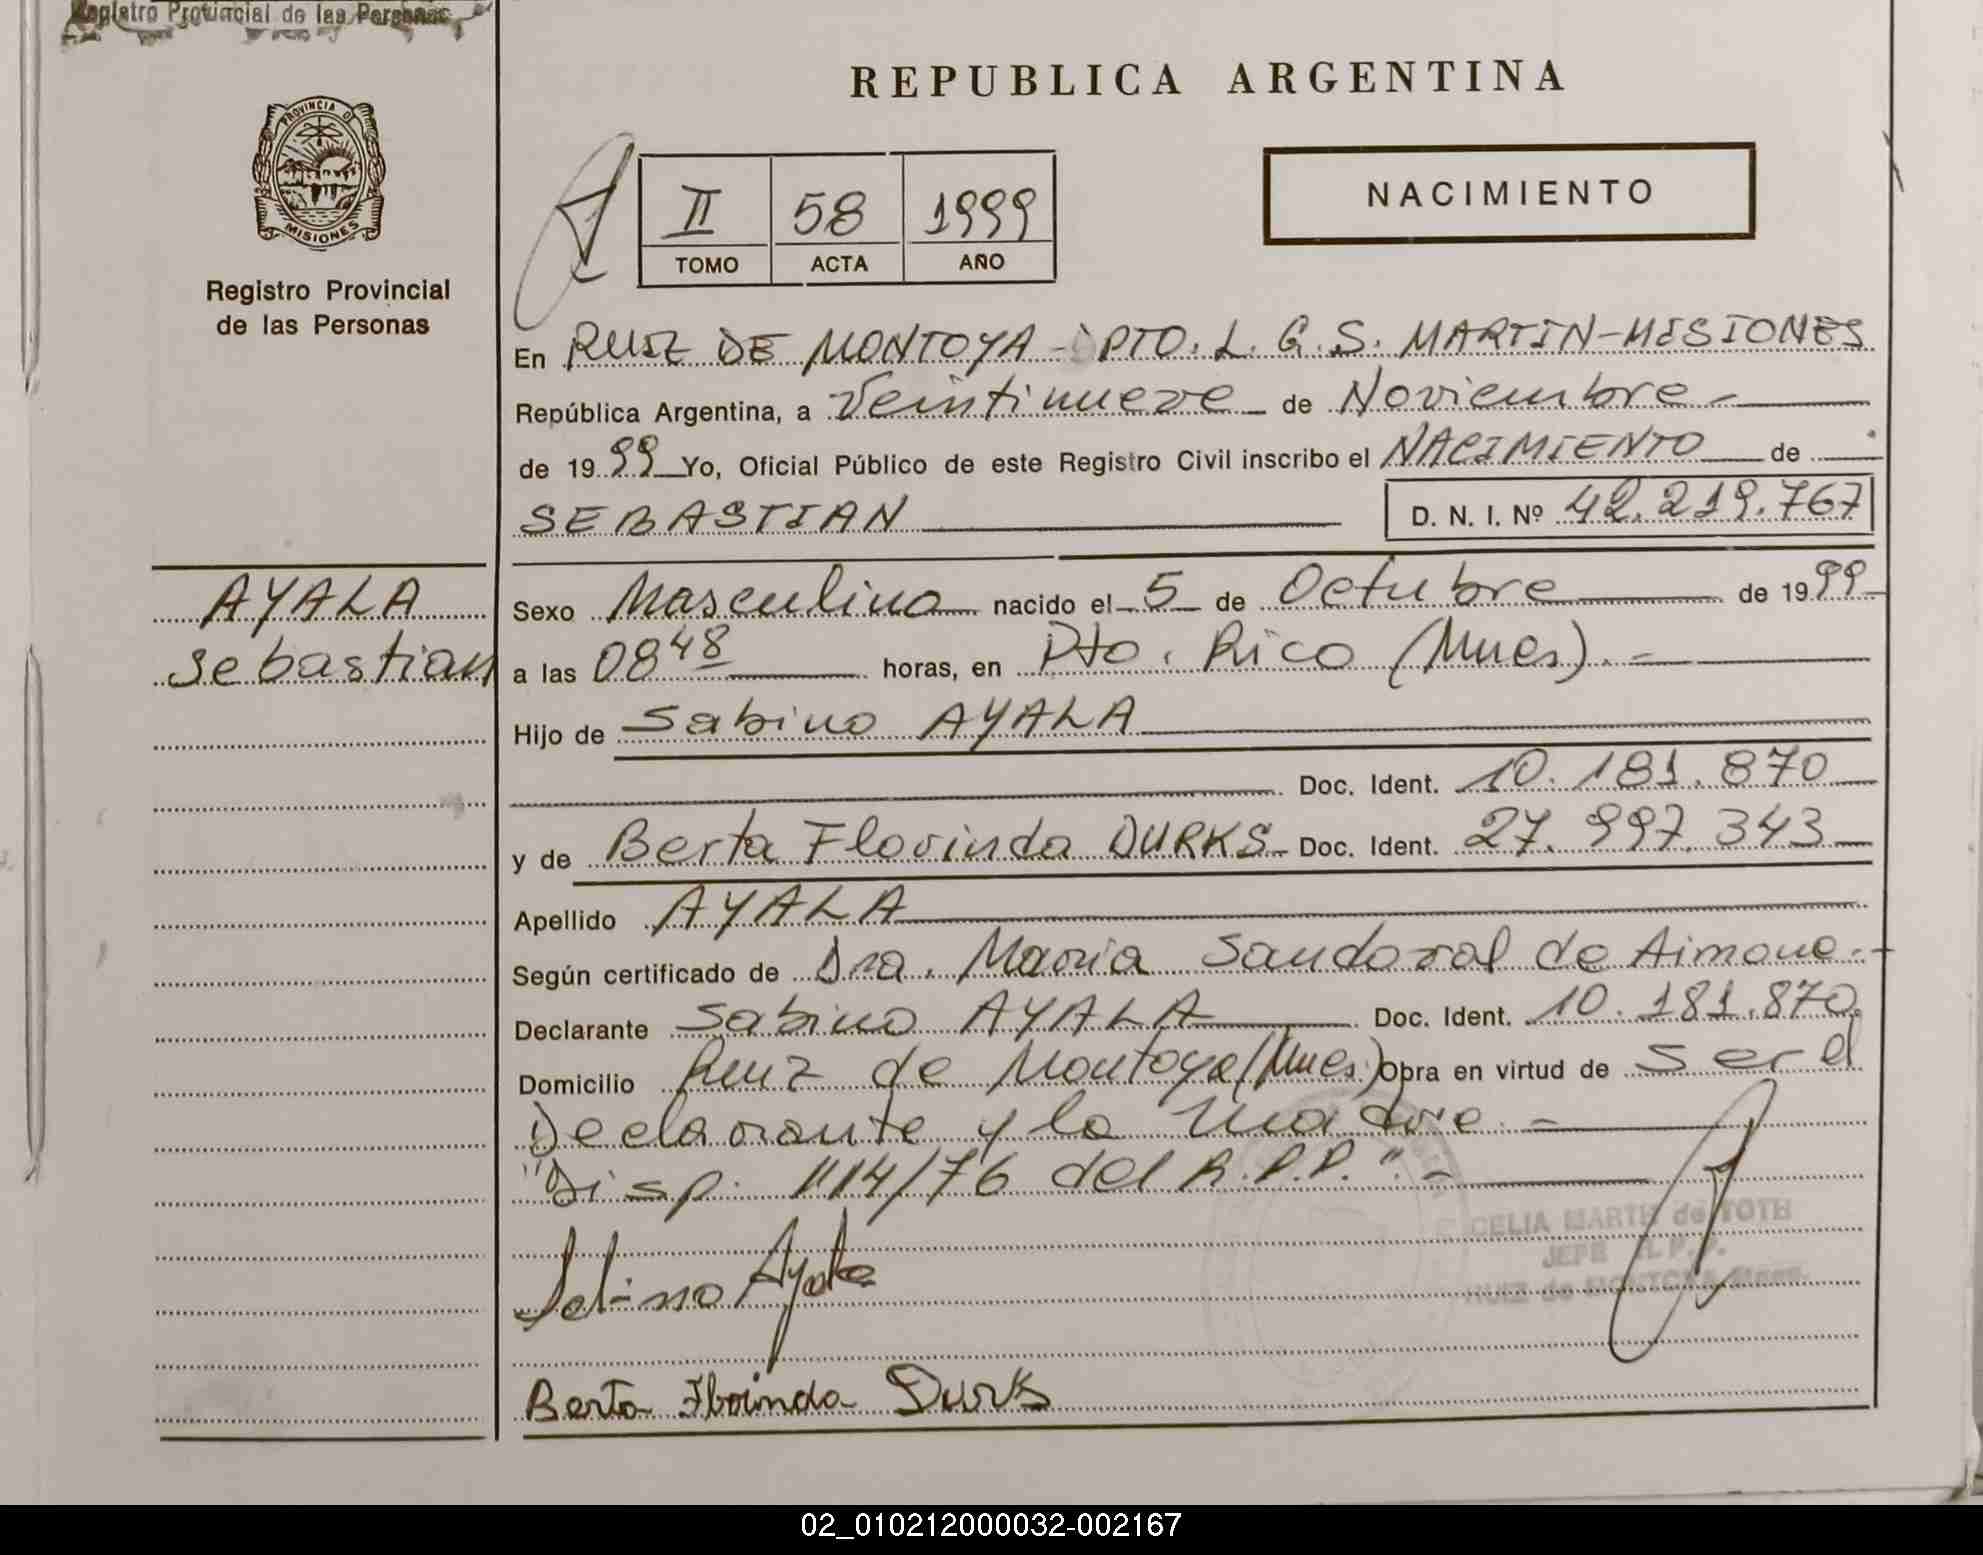 Registro Provincial de las Personas
REPUBLICA ARGENTINA
PROVINCIA D
MISIONES
Registro Provincial
de las Personas
II 58 1999
TOMO ACTA AÑO
NACIMIENTO
En RUIZ DE MONTOYA - DPTO. L. G. S. MARTIN-MISIONES
República Argentina, a Veintinueve de Noviembre
de 1999 Yo, Oficial Público de este Registro Civil inscribo el NACIMIENTO de
SEBASTIAN D. N. I. Nº 42.219.767
AYALA
Sebastian
Sexo Masculino nacido el 5 de Octubre de 1999
a las 08 48 horas, en Pto. Rico (Mnes).-
Hijo de Sabino AYALA
Doc. Ident. 10.181.870
y de Berta Florinda DURKS Doc. Ident. 27.997.343
Apellido AYALA
Según certificado de Dra. Maria Sandoval de Aimone.-
Declarante Sabino AYALA Doc. Ident. 10.181.870
Domicilio Ruiz de Montoya (Mnes.) Obra en virtud de ser el
Declarante y la madre.-
"Disp. 1114/76 del R.P.P.".-
CELIA MARTH de TOTH
JEFE R.P.P.
RUIZ de MONTOYA Mnes.
Sabino Ayala
Berta Florinda Durks
02_010212000032-002167